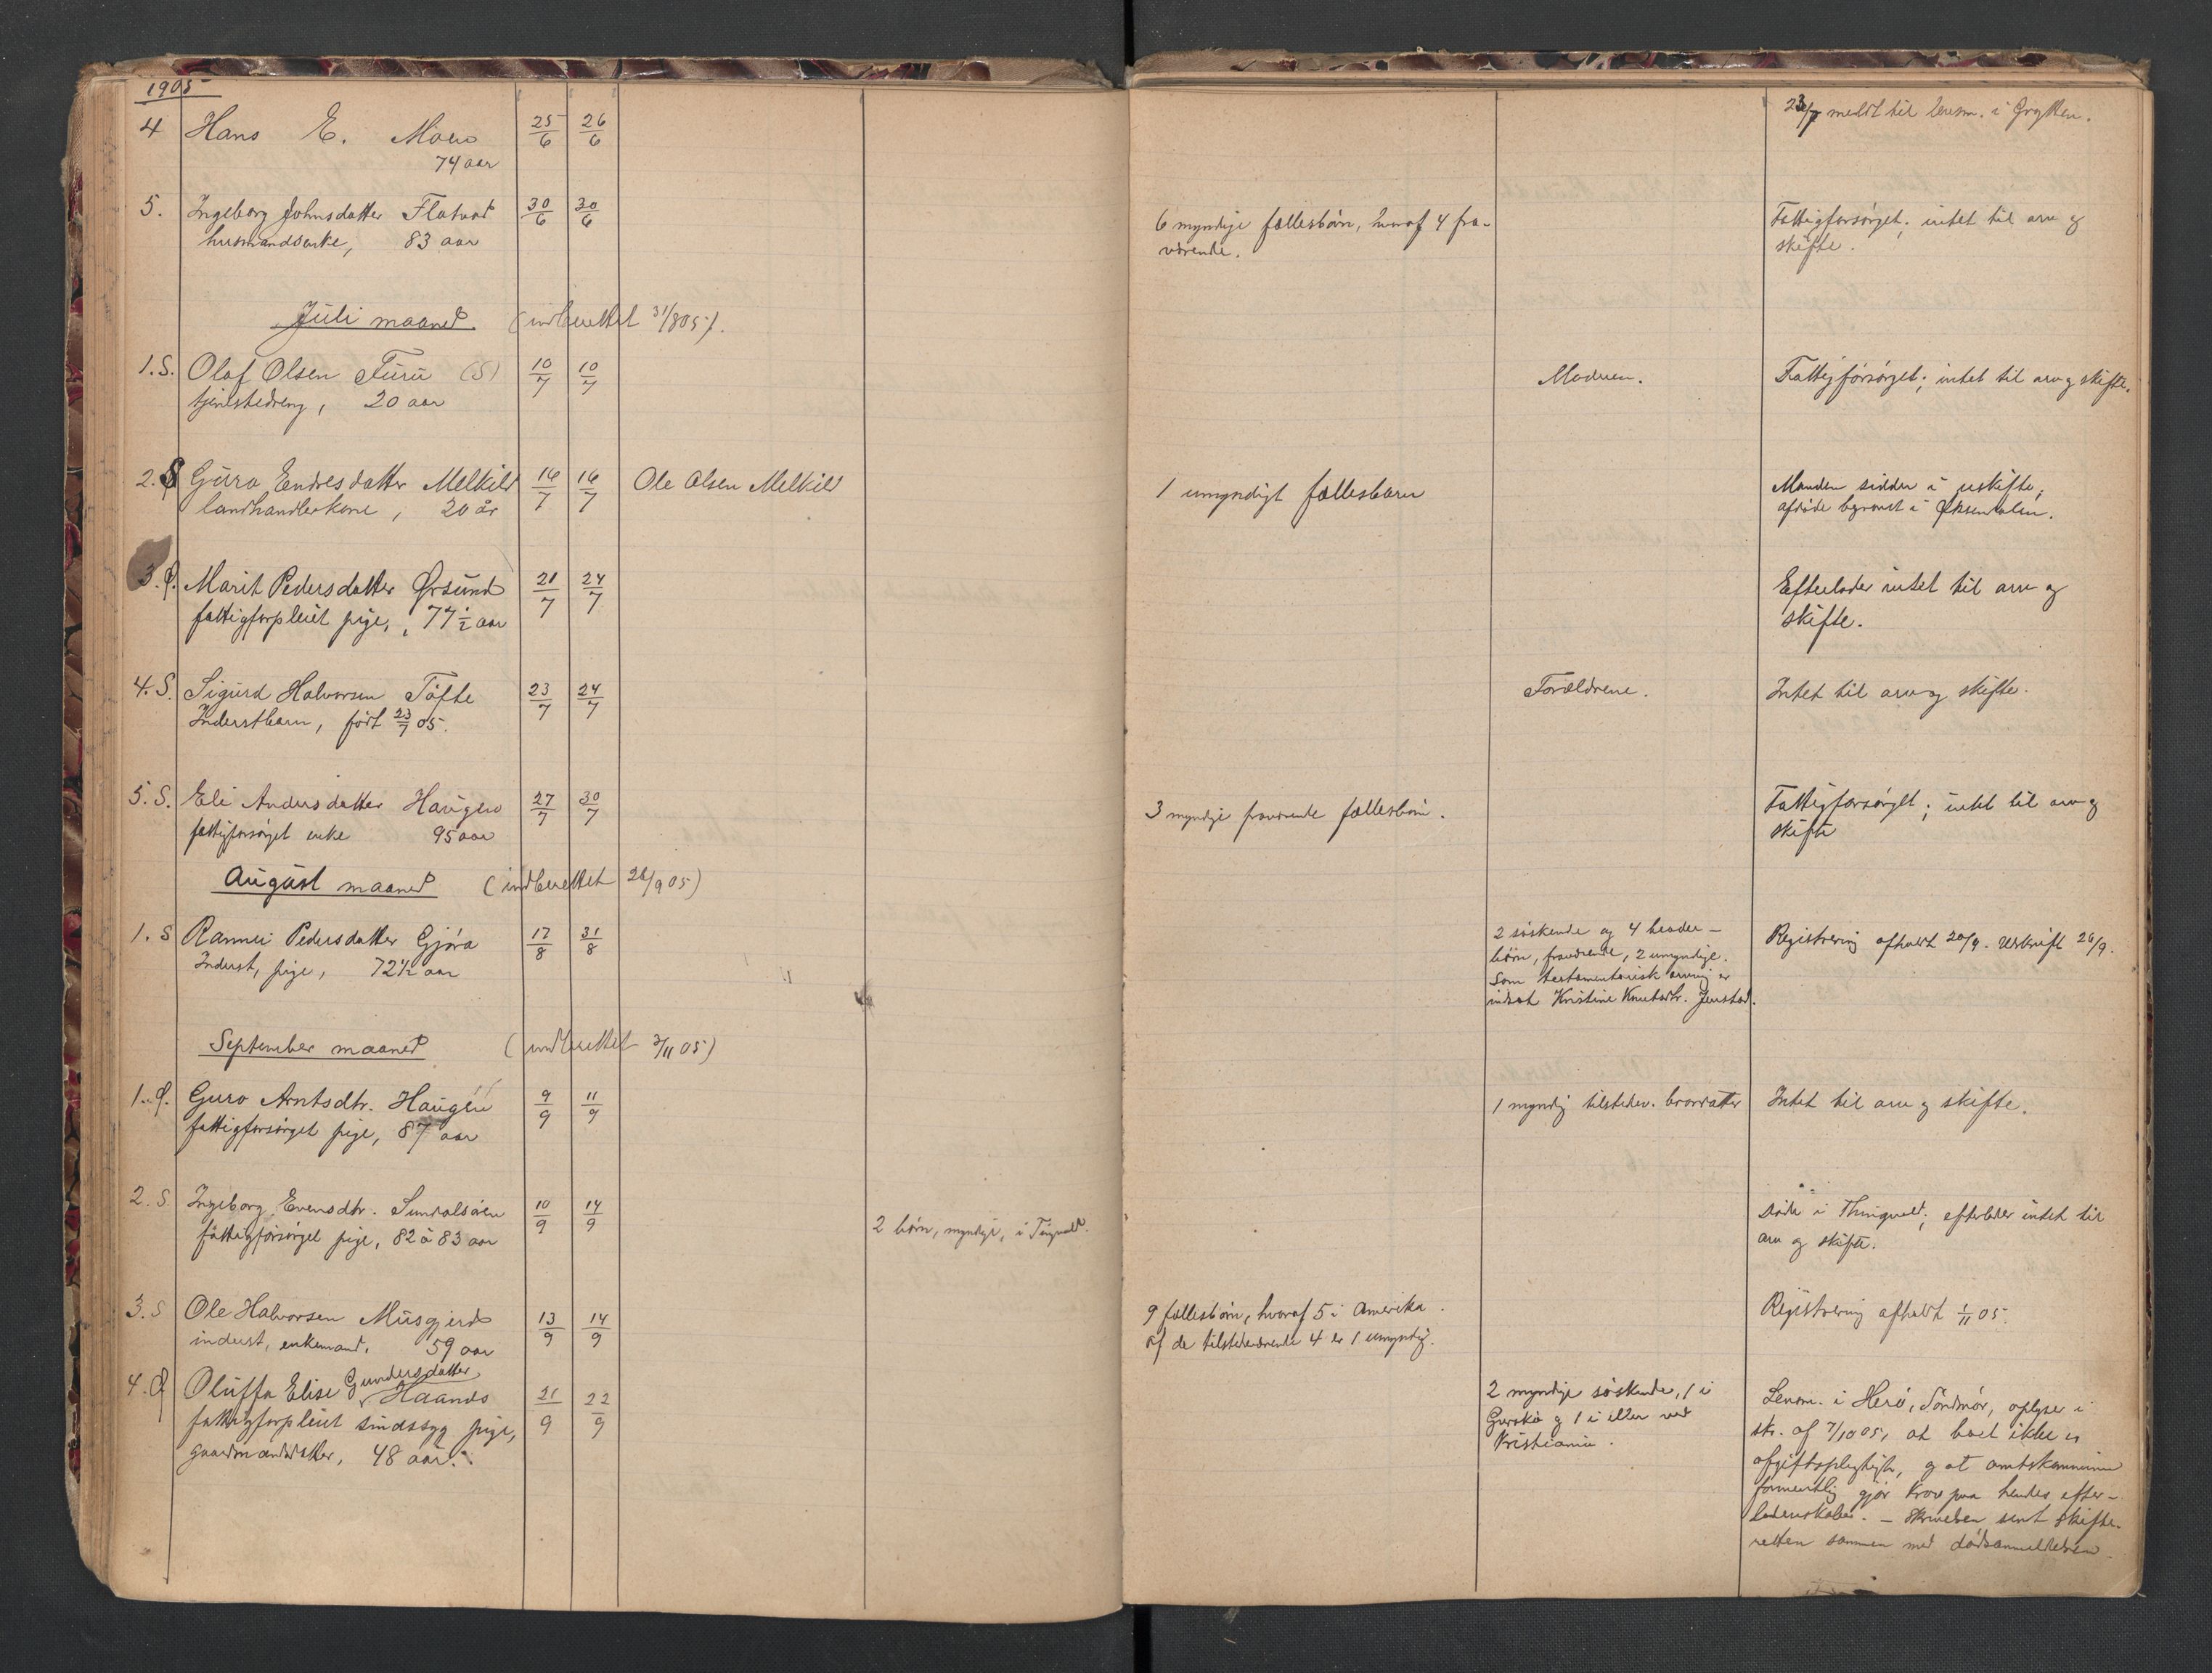 1905
4 Hans E. Moen 25/6 26/6
74 aar
23/7 meldt til lensm. i Grytten.
5. Ingeborg Johnsdatter Flatvad 30/6 30/6
husmandsenke, 83 aar
6 myndige fællesbörn, hvoraf 4 fra-
værende.
Fattigforsörget; intet til arv og
skifte.
Juli maaned. (indberettet 31/8 05).
1. S. Olaf Olsen Furu (S) 10/7 10/7
tjenestedreng, 20 aar
Moderen.
Fattigforsörget; intet til arv og skifte.
2. S Guro Endresdatter Melkild 16/7 16/7 Ole Olsen Melkild
landhandlerkone, 20 år
1 umyndigt fællesbarn
Manden sidder i uskifte,
afdöde begravet i Øksendalen.
3. Ø. Marit Pedersdatter Ørsund 21/7 24/7
fattigforpleiet pige, 77 1/2 aar
Efterlader intet til arv og
skifte.
4. S. Sigurd Halvorsen Töfte 23/7 24/7
Inderstbarn, född 23/7 05.
Forældrene.
Intet til arv og skifte.
5. S. Eli Andersdatter Haugen 27/7 30/7
fattigforsörget enke 95 aar
3 myndige fraværende fællesbörn.
Fattigforsörget; intet til arv og
skifte
August maaned (indberettet 26/9 05)
1. S Rannei Pedersdatter Gjöra 17/8 31/8
Inderst, pige, 72 1/2 aar
2 söskende og 4 broder-
börn, fraværende, 2 umyndige.
Som testamentarisk arving er
indsat Kristine Knutsdtr. Jenstad.
Registrering afholdt 20/9. Udskrift 26/9.
September maaned (indberettet 3/11 05)
1. Ø. Guro Arntsdtr. Haugen 9/9 11/9
fattigforsörget pige, 87 aar
1 myndig tilstedev. brordatter
Intet til arv og skifte.
2. S Ingeborg Evensdtr. Sundalsören 10/9 14/9
fattigforsörget pige, 82 à 83 aar
2 börn, myndige, i Tingvold.
Döde i Thingvold; efterlader intet til
arv og skifte.
3. S Ole Halvorsen Musgjerd 13/9 14/9
inderst, enkemand. 59 aar
9 fællesbörn, hvoraf 5 i Amerika.
Af de tilstedeværende 4 er 1 umyndig.
Registrering afholdt 1/11 05.
4. Ø Oluffa Elise Gundersdatter Haands 21/9 22/9
fattigforpleiet sindssyg pige,
gaardmandsdatter, 48 aar.
2 myndige söskende, 1 i
Gurskö og 1 i eller ved
Kristiania.
Lensm. i Herö, Söndmör, oplyser i
skr. af 7/10 05, at boet ikke er
afgiftspligtigt, og at amtskommunen
formentlig gjör krav paa hendes efter-
ladenskaber. - Skrivelsen sent skifte-
retten sammen med dödsanmeldelsen.